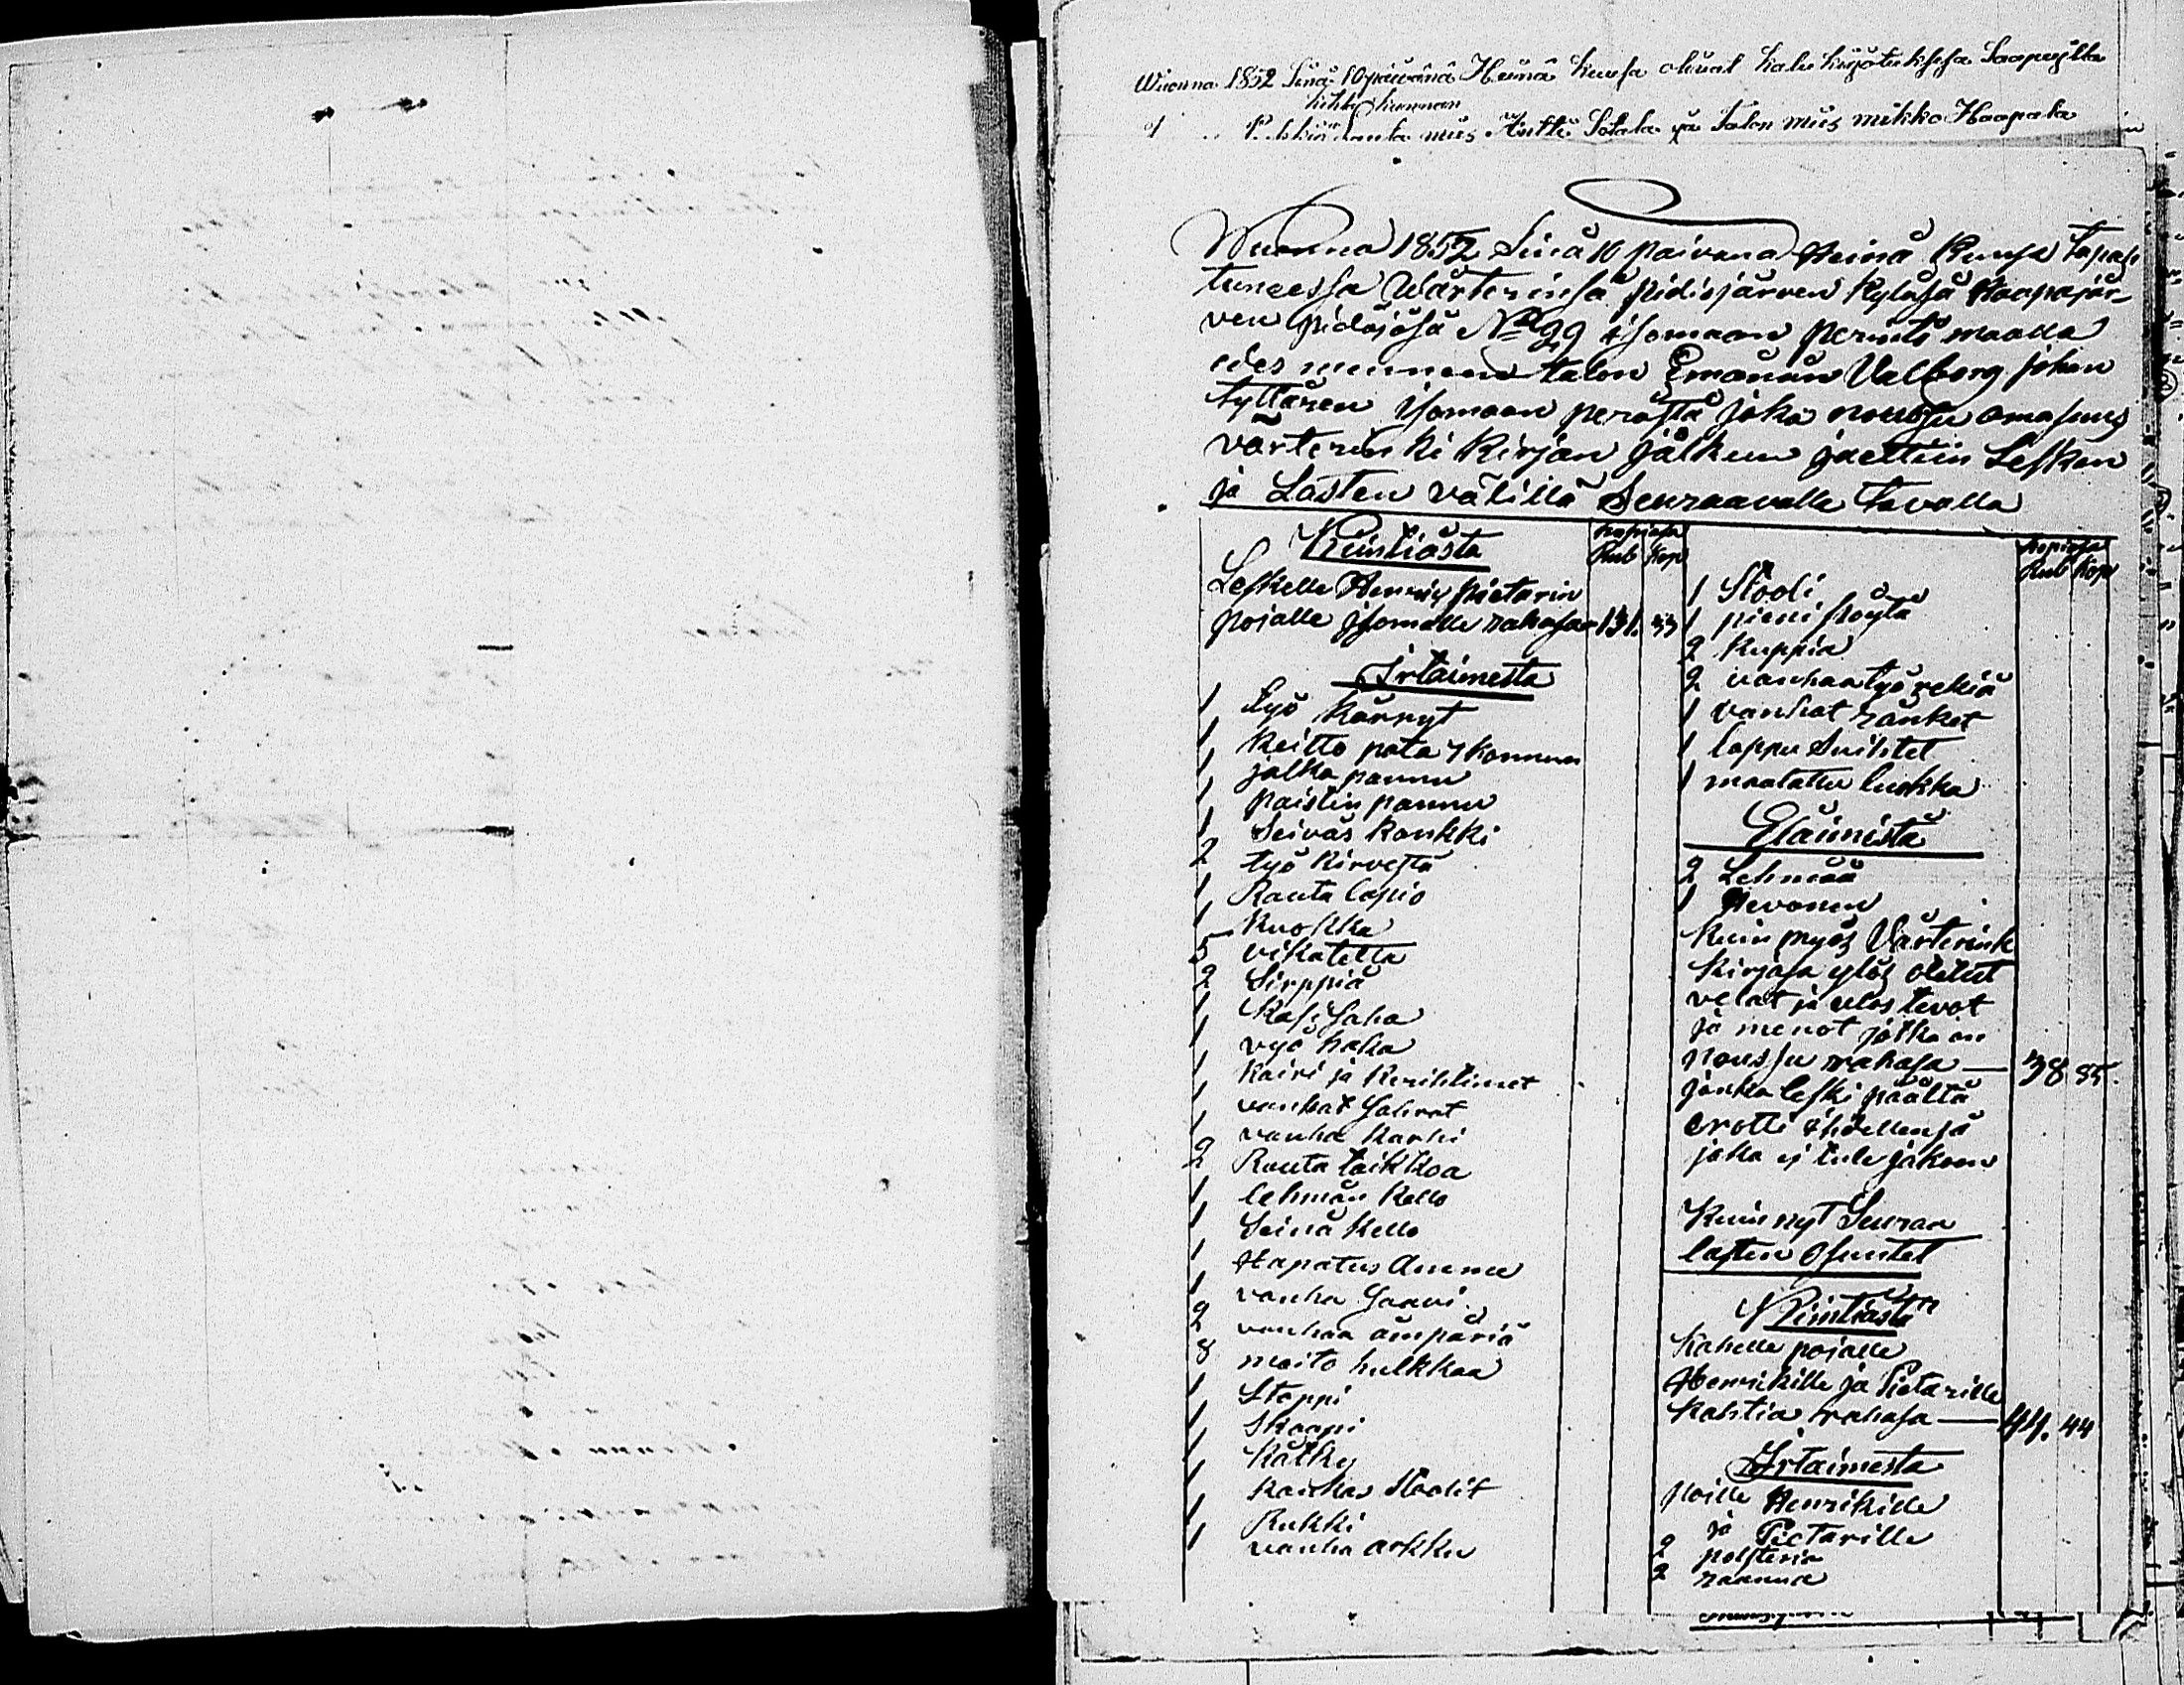 Wuonna 1852 Sinä 10 päiwänä Heinä kuusa olivat kalu kirjotuksesa Saapuvilla
kihla kunnan
Lauta mies Antti Sotala ja Talon mies mikko Haapala
Wuonna 1852 Sinä 10 päivänä Heinä Kuusa Tapah
tuneessa Wärterinsä Pidisjärven Kyläsä Haapajär-
ven pidäjäsä No 29 isomaan perintö maalla
edes mennen talon Emännän Valborg johan
tyttären isomaan perästä joka noussu omasuus
värterinki Kirjan jälkeen jaettiin Lesken
ja Lasten välillä Seuraavalla tavalla
Kiintiästä
hopiasa
Rub Kop
Leskelle Henrik Pietarin
pojalle isomalle rahasa 131. 33
Irtaimesta
1 Työ Kärryt
1 Keitto pata 7 kannun
1 jalka pannu
1 paistin pannu
1 Seiväs kankki
2 työ kirvestä
1 Rauta lapio
1 Kuokka
5 vikatetta
2 Sirppiä
1 Käsi Saha
1 vyö haka
1 kairi ja kerihtimet
1 vanhat Sahrat
1 vanha karhi
2 Rauta taikkoa
1 lehmän kello
1 Seinä kello
1 Hapatus Ammee
1 vanha Saavi
2 vanhaa ämpäriä
8 maito hulkkaa
1 Stoppi
1 Skaapi
1 Kätky
1 kankas stoolit
1 Rukki
1 vanha arkku
hopiasa
Rub Kop
1 Stooli
1 pieni pöytä
2 kuppia
2 vanhaa työ rekiä
1 vanhat ränket
1 loppu Suihtet
1 maalattu luokka
Eläimistä
2 Lehmää
1 Hevonen
Kuin myös Värterink
Kirjasa ylös otetut
velat ja ulos tevot
ja menot jotka on
noussu rahasa — 38 85.
jonka leski päältä
erotti itsellensä
joka ej tule jakoon
Kuin nyt Seuraa
lasten Osuutet
Kiintiästä
Kahelle pojalle
Henrikille ja Pietarille
kahtia rahasa — 44. 44
Irtaimesta
Poille Henrikille
ja Pietarille
2 polsteria
2 raanua